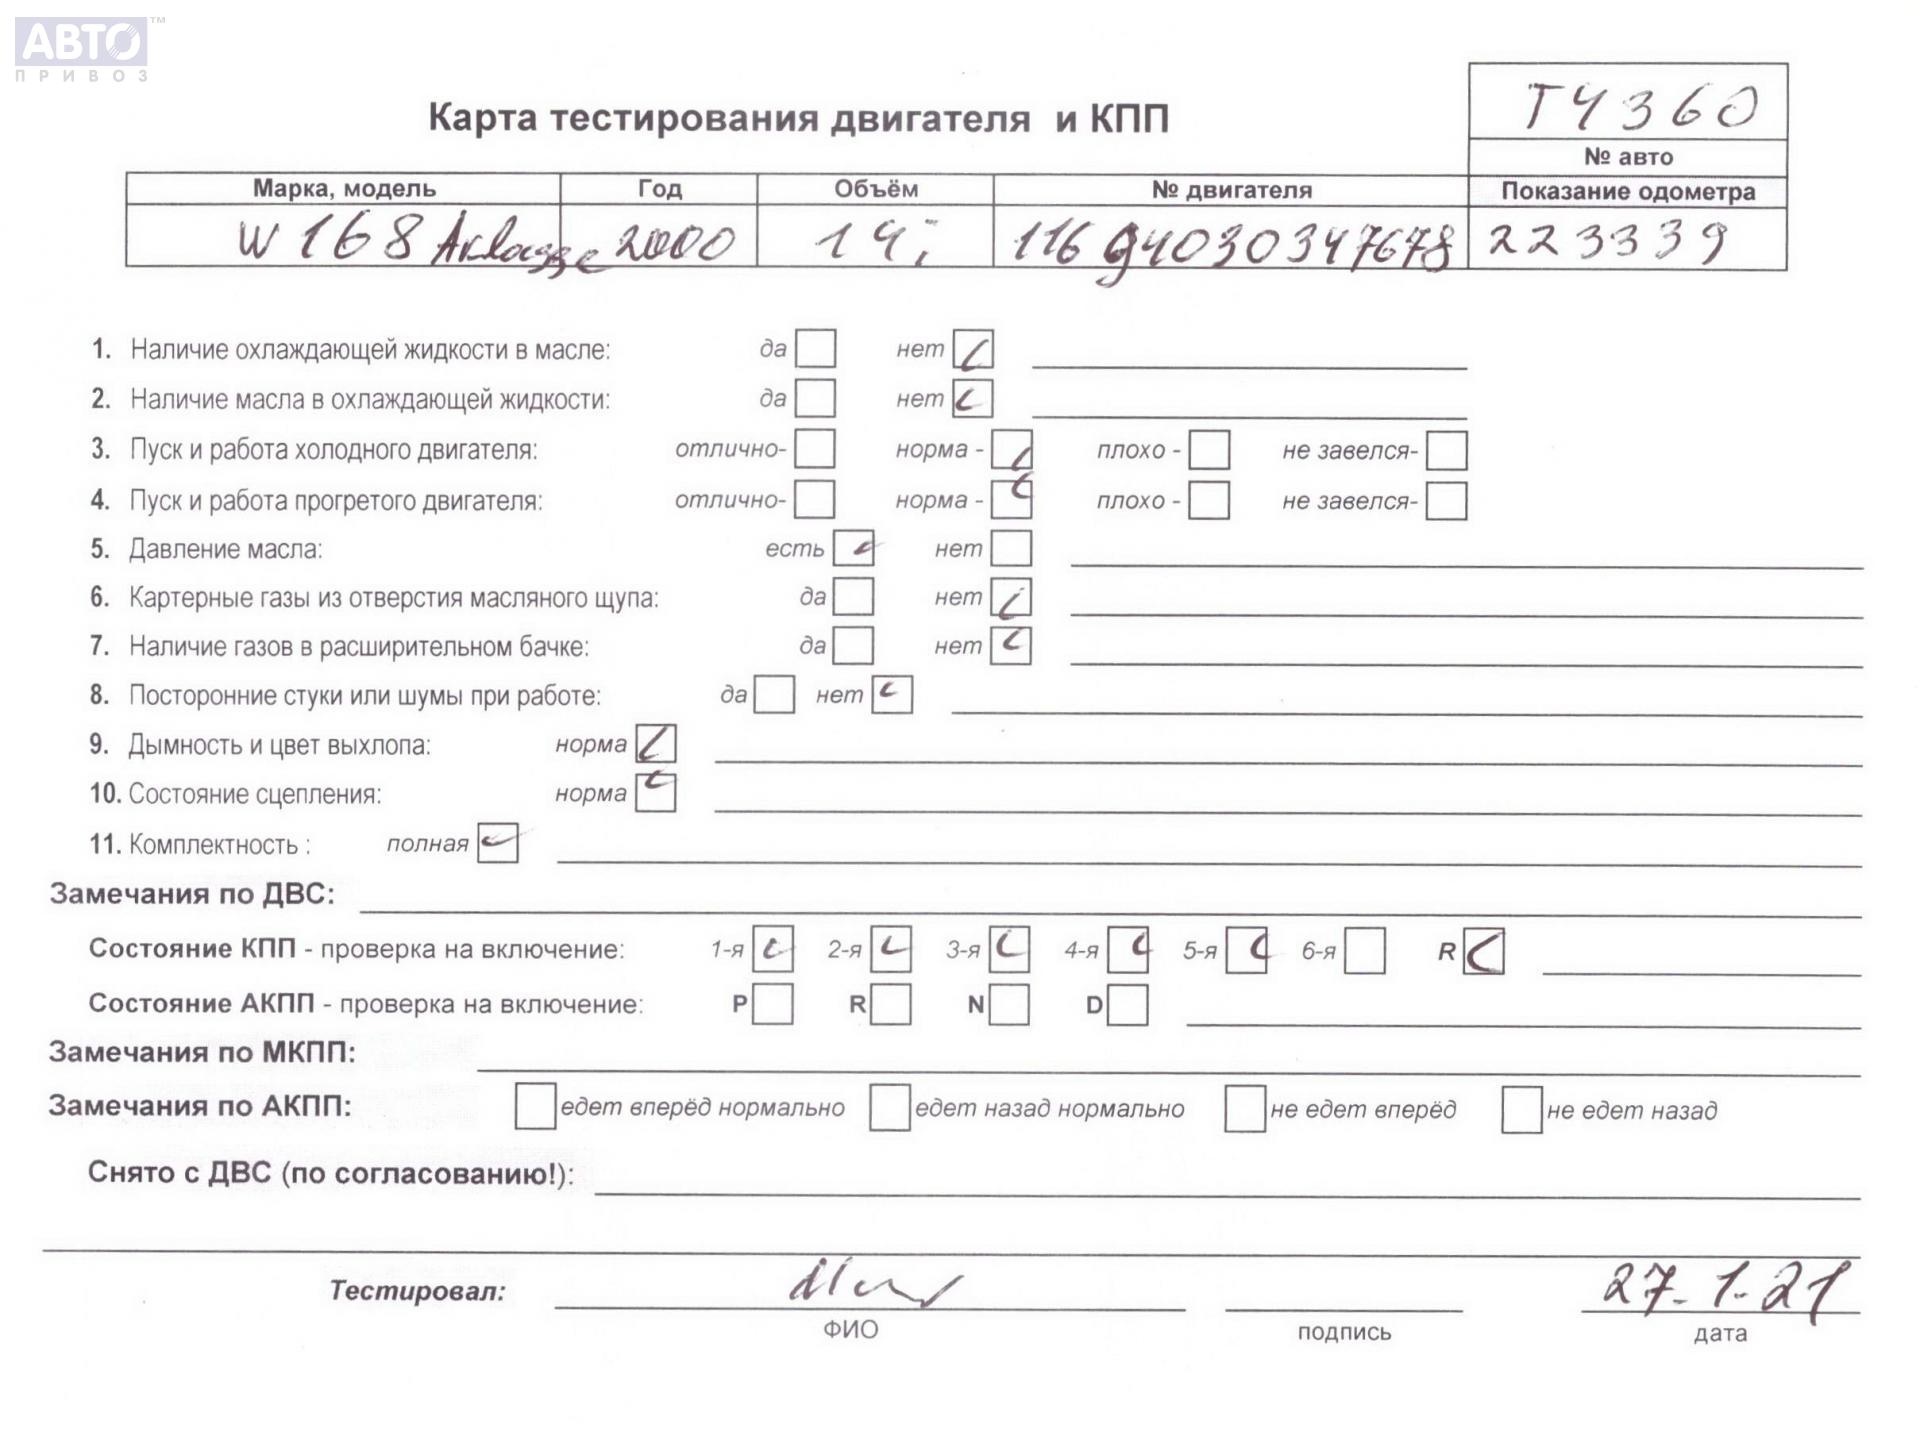 АВТО™
ПРИВОЗ
Т4360
Карта тестирования двигателя и КПП
№ авто
Марка, модель Год Объём № двигателя Показание одометра
W168 Aklasse 2000 14i 116 94030347678 223339
1. Наличие охлаждающей жидкости в масле: да нет
2. Наличие масла в охлаждающей жидкости: да нет
3. Пуск и работа холодного двигателя: отлично- норма - плохо - не завелся-
4. Пуск и работа прогретого двигателя: отлично- норма - плохо - не завелся-
5. Давление масла: есть нет
6. Картерные газы из отверстия масляного щупа: да нет
7. Наличие газов в расширительном бачке: да нет
8. Посторонние стуки или шумы при работе: да нет
9. Дымность и цвет выхлопа: норма
10. Состояние сцепления: норма
11. Комплектность : полная
Замечания по ДВС:
Состояние КПП - проверка на включение: 1-я 2-я 3-я 4-я 5-я 6-я R
Состояние АКПП - проверка на включение: P R N D
Замечания по МКПП:
Замечания по АКПП: едет вперёд нормально едет назад нормально не едет вперёд не едет назад
Снято с ДВС (по согласованию!):
Тестировал: 27.1.21
ФИО подпись дата